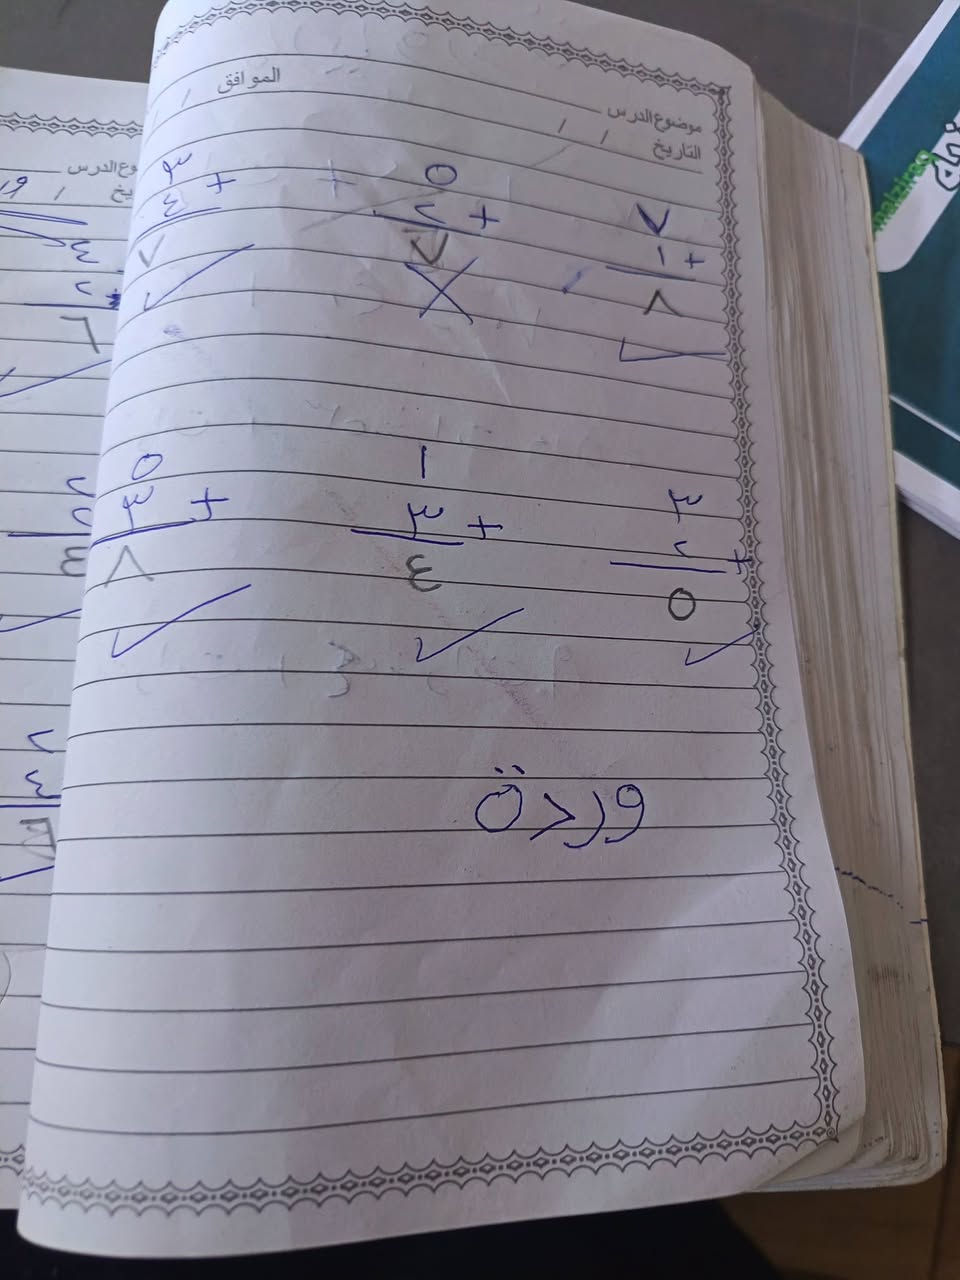 موضوع الدرس
التاريخ / / الموافق /
٧ ٥ ٣
+ ١ + ٢ + ٤
٨ ٧ ٧
٣ ١ ٥
+ ٢ + ٣ + ٣
٥ ٤ ٨
وردة
وع الدرس
يخ /
٤
+ ٢
٦
٢
٢
٤
٢
٤